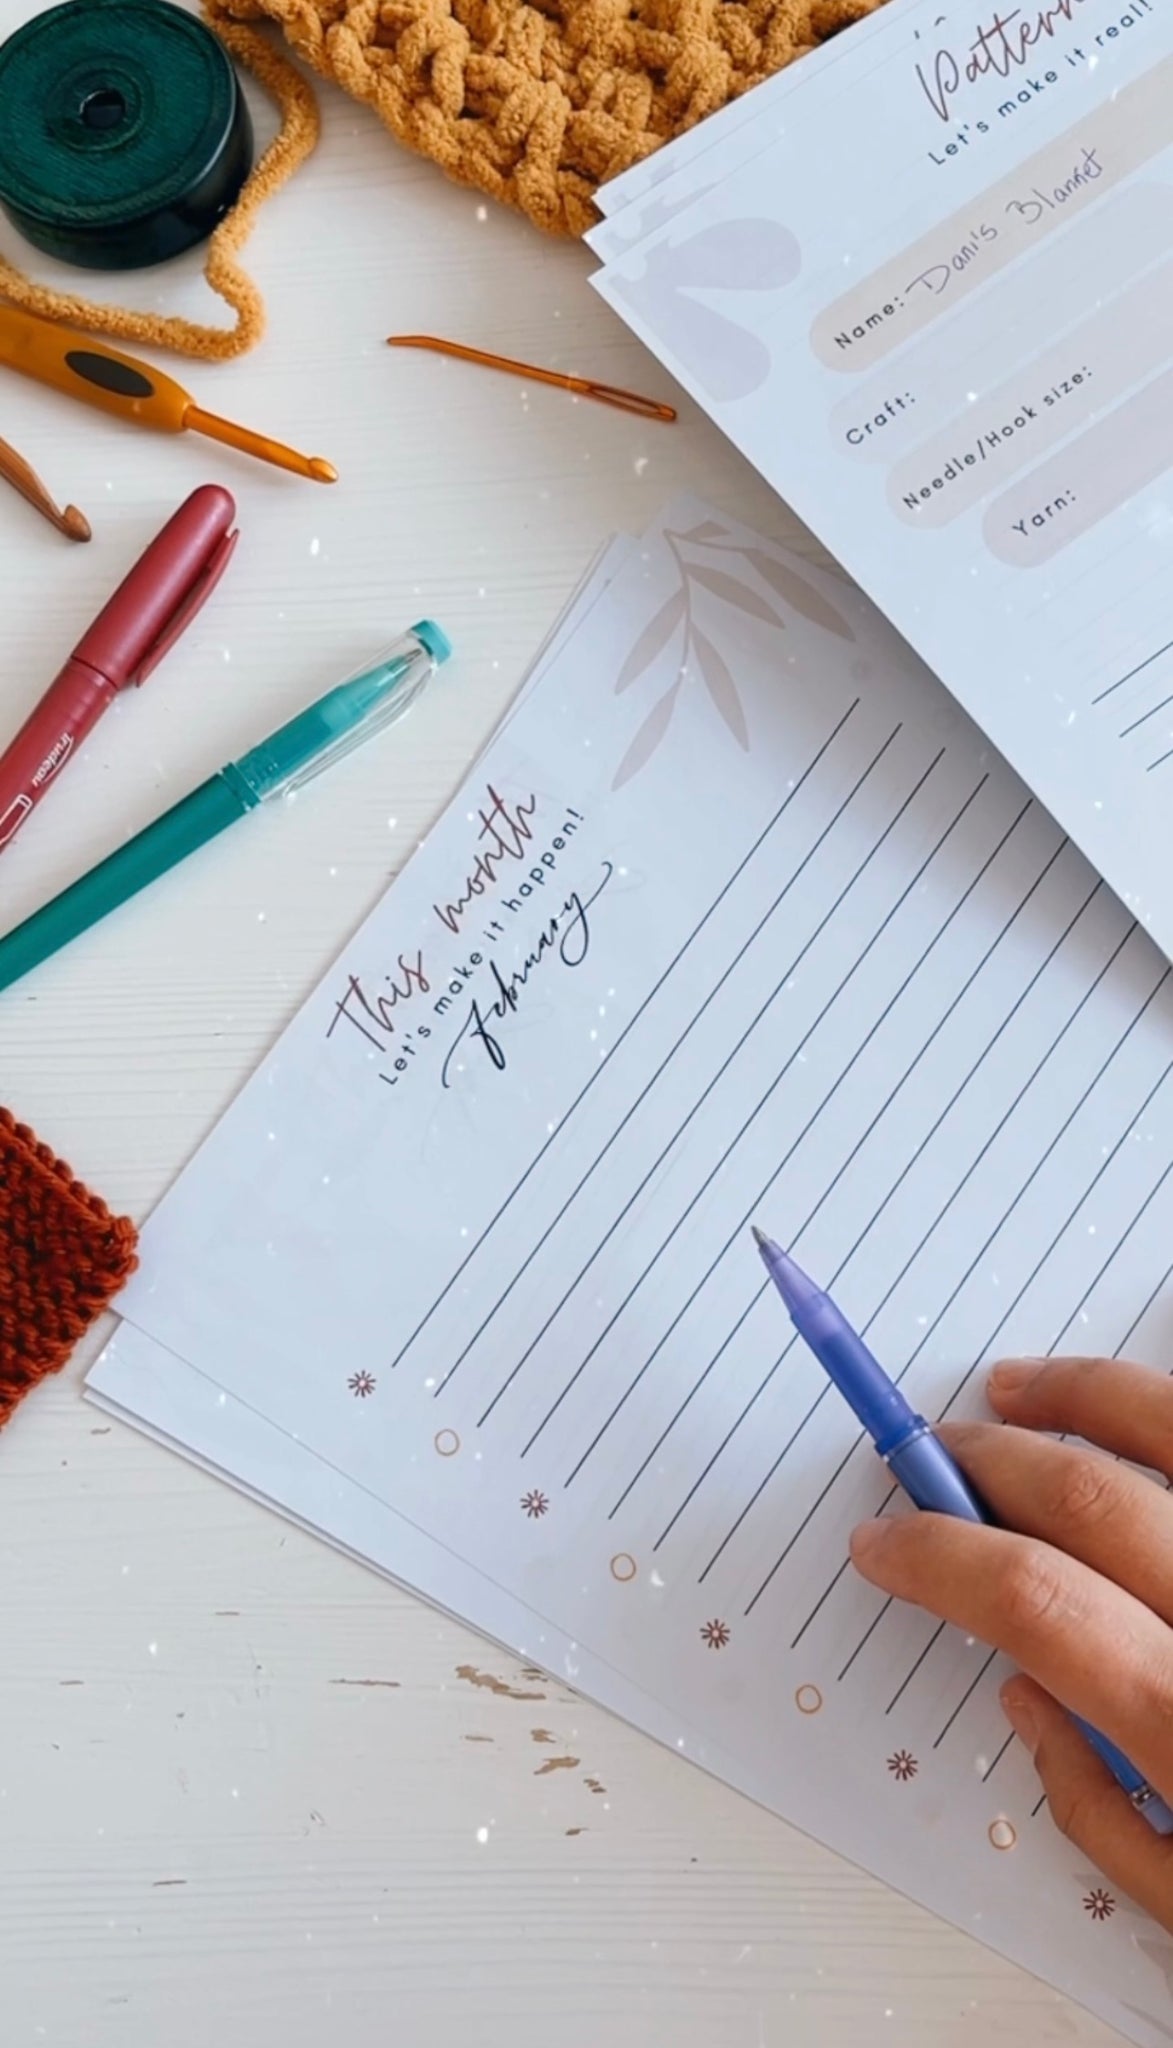 Pattern
Let's make it real!
Name: Dani's Blanket
Craft:
Needle/Hook size:
Yarn:
Trudeau
This month
Let's make it happen!
February